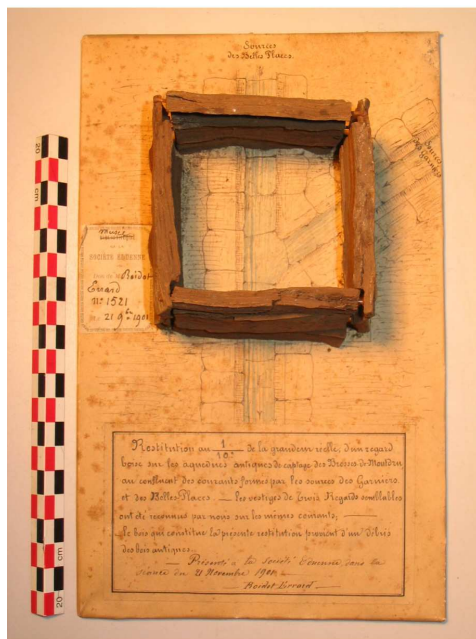 Sources
des Belles Places
Source
des Garniers
20 cm
Musée
DE LA
SOCIÉTÉ EDUENNE
Roidot
Errard
No 1521
21 9bre 1901
Restitution au 1/10e de la grandeur réelle, d'un regard
boisé sur les aqueducs antiques de captage des Brosses-de-Mouldru
au confluent des courants formés par les sources des Garniers
et des Belles Places — les vestiges de trois Regards semblables
ont été reconnus par nous sur les mêmes courants. —
Le bois qui constitue la présente restitution provient d'un débris
des bois antiques.
— Présenté à la Société Eduenne dans sa
séance du 21 Novembre 1901 —
— Roidot Errard —
20 cm